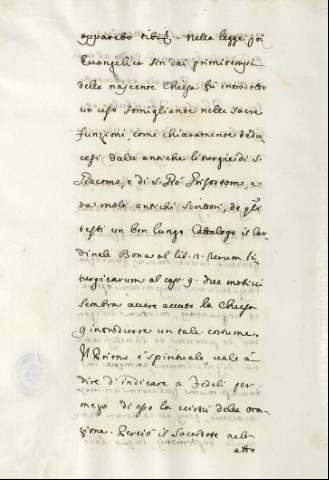 apparebo tibi &. Nella legge poi
Evangelica sin dai primi tempi
della nascente Chiesa fu introdotto
un uso somigliante nelle sacre
funzioni, come chiaramente dedu
cesi dalle antiche liturgie di S.
Giacomo, e di S. Gio Grisostomo, e
da molti antichi Scrittori, de qli
tesse un ben lungo Catalogo il Car
dinale Bona al lib. 1. Rerum li
turgicarum al cap. 9. due motivi
sembra avere avuto la Chiesa
p introdurre un tale costume.
Il Primo è spirituale vale a
dire d'indicare a Fedeli per
mezo di esso la virtù della ora
zione. Perciò il Sacerdote nell'
atto